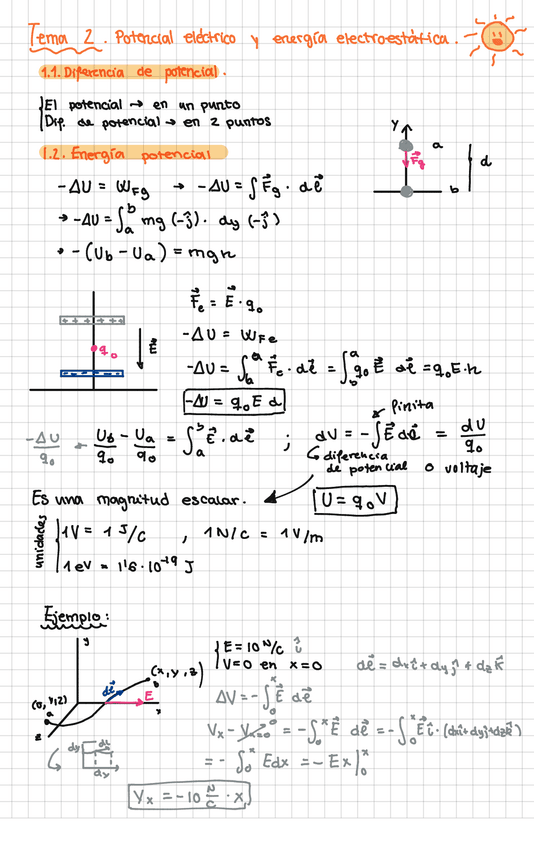 Tema 2. Potencial eléctrico y energía electroestática.
1.1. Diferencia de potencial.
El potencial → en un punto
Dif. de potencial → en 2 puntos
1.2. Energía potencial
y
a
F⃗g
d
b
-ΔU = W_Fg → -ΔU = ∫ F⃗g · dℓ⃗
→ -ΔU = ∫ₐᵇ mg (-ĵ) · dy (-ĵ)
• -(Ub - Ua) = mgh
F⃗e = E⃗ · q₀
-ΔU = W_Fe
q₀
E⃗
-ΔU = ∫_b^a F⃗e · dℓ⃗ = ∫_b^a q₀ E⃗ dℓ⃗ = q₀E·h
-ΔU = q₀ E d
finita
-ΔU/q₀ = Ub/q₀ - Ua/q₀ = ∫ₐᵇ E⃗ · dℓ⃗ ; dV = -∫E⃗ dℓ⃗ = dU/q₀
diferencia
de potencial o voltaje
Es una magnitud escalar.
U = q₀V
unidades
1V = 1 J/C , 1 N/C = 1 V/m
1 eV = 1'6 · 10⁻¹⁹ J
Ejemplo:
y
(x, y, z)
dℓ⃗
b
E
(0, y, z)
a
x
z
dy
dℓ
dx
E = 10 N/C î
V=0 en x=0
dℓ⃗ = dxî + dyĵ + dzk̂
ΔV = -∫₀ˣ E⃗ dℓ⃗
Vx - Vx=0 = -∫₀ˣ E⃗ dℓ⃗ = -∫₀ˣ Eî · (dxî+dyĵ+dzk̂)
= -∫₀ˣ Edx = -Ex|₀ˣ
Vx = -10 N/C · x